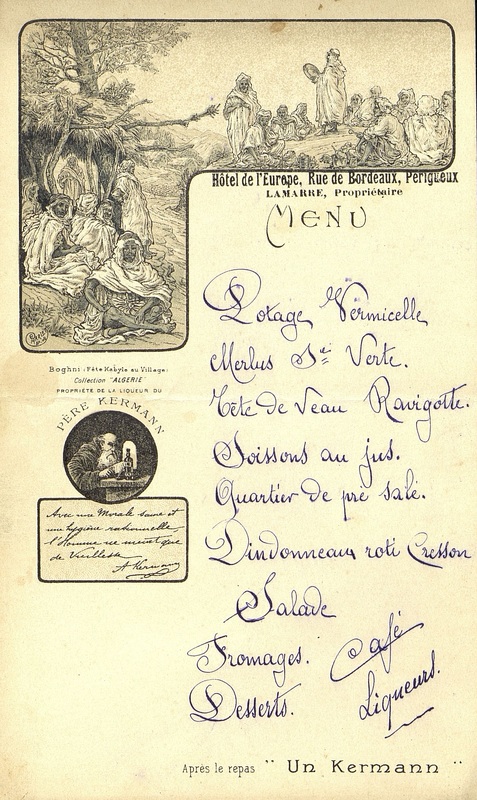 Hôtel de l'Europe, Rue de Bordeaux, Périgueux
LAMARRE, Propriétaire
MENU
Potage Vermicelle
Merlus Sce Verte.
Tête de Veau Ravigotte.
Soissons au jus.
Quartier de pré salé.
Dindonneaux roti Cresson
Salade
Fromages.
Desserts.
Café
Liqueurs.
Boghni : Fête Kabyle au Village
Collection "ALGERIE"
PROPRIÉTÉ DE LA LIQUEUR DU
PÈRE KERMANN
Avec une Morale saine et
une hygiène rationnelle,
l'Homme ne meurt que
de Vieillesse
A Kermann
Après le repas " Un Kermann "